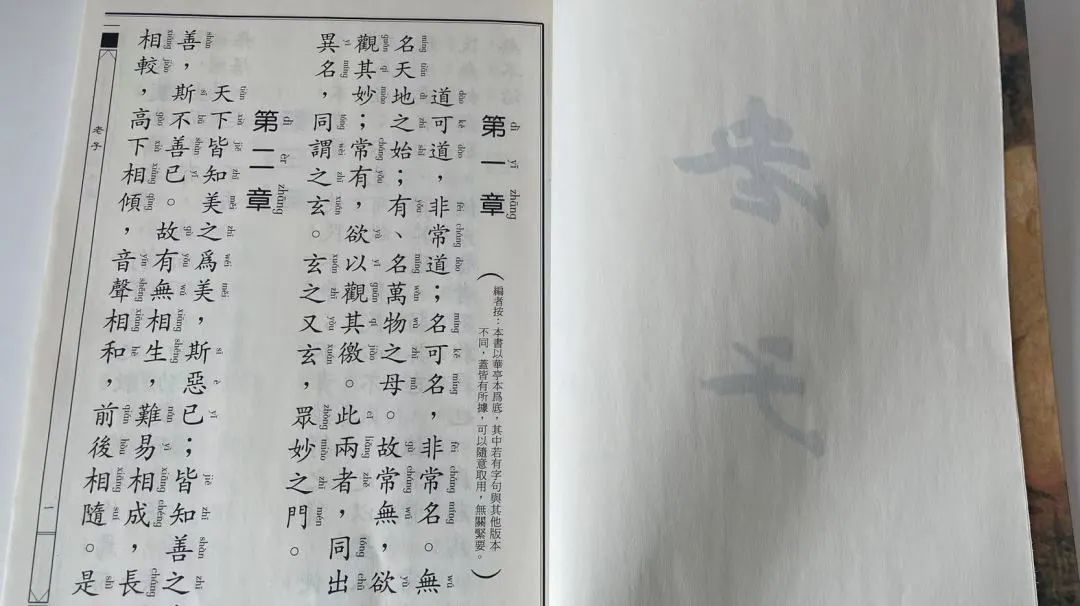 第一章
（編者按：本書以華亭本爲底，其中若有字句與其他版本
不同，蓋皆有所據，可以隨意取用，無關緊要。）
道可道，非常道；名可名，非常名。無
名天地之始；有、名萬物之母。故常無，欲
觀其妙；常有，欲以觀其徼。此兩者，同出
異名，同謂之玄。玄之又玄，眾妙之門。
第二章
天下皆知美之爲美，斯惡已；皆知善之
善，斯不善已。故有無相生，難易相成，長
相較，高下相傾，音聲相和，前後相隨。是
老子
一